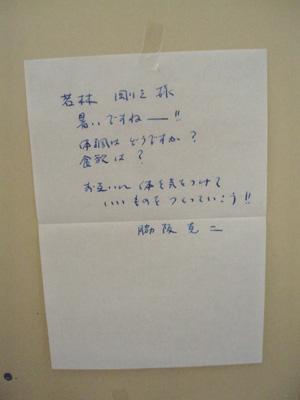 若林 剛之 様
暑いですねー!!
体調はどうですか?
食欲は?
お互いに 体を気をつけて
いいものを つくっていこう!!
脇阪 克二